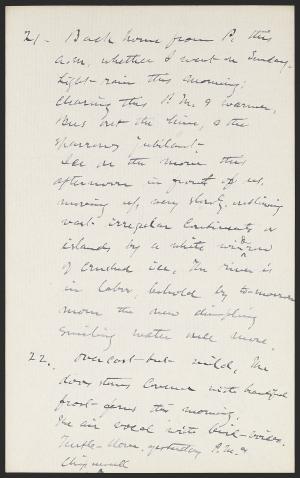 21 - Back home from P. this
a.m. whether I went on Sunday.
Light rain this morning;
clearing this P.M. & warmer,
the
sparrows jubilant.
Ice on the move this
afternoon in front of us,
moving up, very slowly, outlining
vast irregular continents or
islands by a white
of crushed ice. The river is
in labor, behold by to-morrow
morn the new dimpling
smiling water once more.
22. overcast but mild. The
door stones covered with beautiful
frost-ferns this morning.
The air vocal with bird-voices.
Turtle-dove yesterday P.M. &
Chipmunk